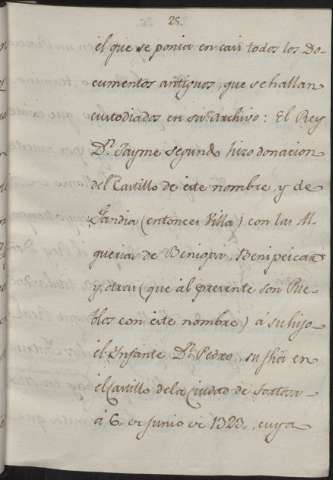 25.
el que se ponia en casi todos los Do-
cumentos antiguos, que se hallan
custodiados en su Archivo: El Rey
Dn. Jayme segundo hizo donacion
del Castillo de este nombre, y de
Gandia (entonces Villa) con las Al-
queria de Beniopa, Benipeixcar
y otras (que al presente son Pue-
blos con este nombre) á su hijo
el Infante Dn. Pedro, su fha en
el Castillo de la Ciudad de
á 6 de Junio de 1323, cuya